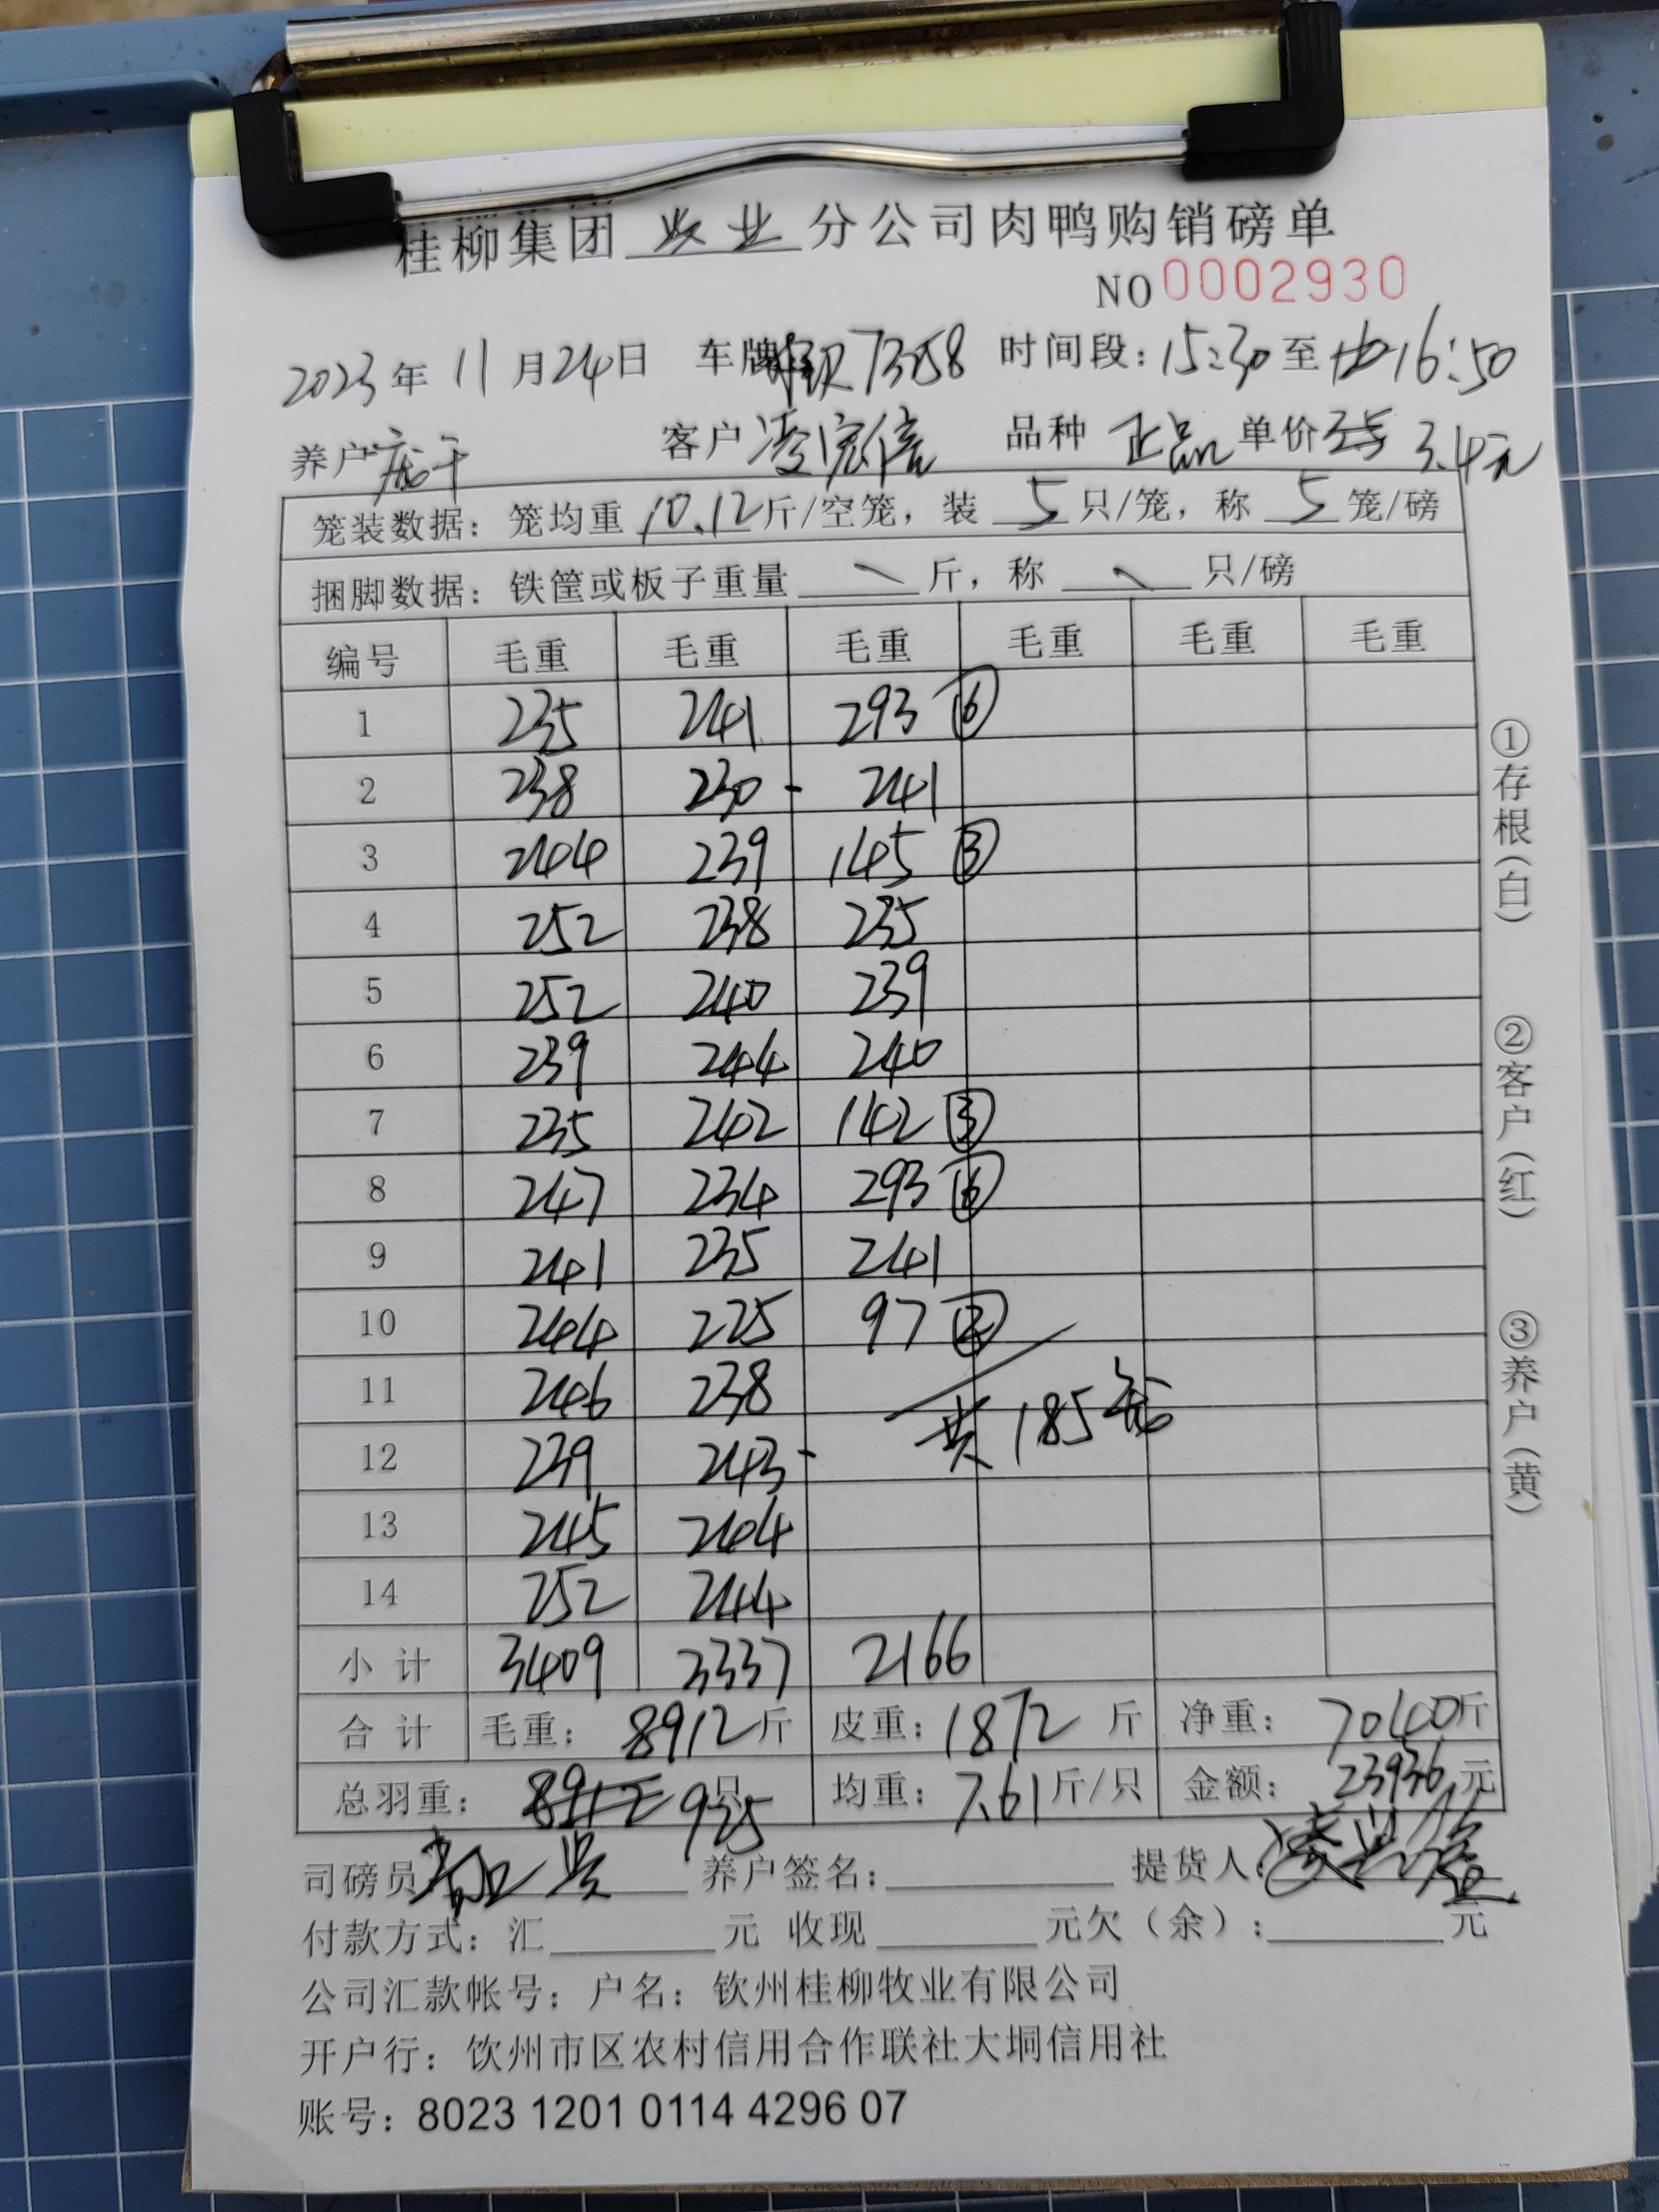 桂柳集团 兴业 分公司肉鸭购销磅单
NO 0002930
2023年 11月24日 车牌 7358 时间段：15:30至 16:50
养户 庞干 客户 凌宏信 品种 正品 单价 3.4元
笼装数据：笼均重 10.12 斤/空笼，装 5 只/笼，称 5 笼/磅
捆脚数据：铁筐或板子重量 斤，称 只/磅
编号 毛重 毛重 毛重 毛重 毛重 毛重
1 235 241 293 ⑥
2 238 230 - 241
3 244 239 145 ③
4 252 238 235
5 252 240 239
6 239 244 240
7 235 242 142 ③
8 247 234 293 ⑥
9 241 235 241
10 244 225 97 ②
11 246 238
12 239 243 - 共185笼
13 245 244
14 252 244
小计 3409 3337 2166
合计 毛重：8912斤 皮重：1872斤 净重：7040斤
总羽重：925只 均重：7.61斤/只 金额：23936元
司磅员 养户签名： 提货人：
付款方式：汇 元 收现 元欠（余）： 元
公司汇款帐号：户名：钦州桂柳牧业有限公司
开户行：饮州市区农村信用合作联社大垌信用社
账号：8023 1201 0114 4296 07
①存根（白） ②客户（红） ③养户（黄）